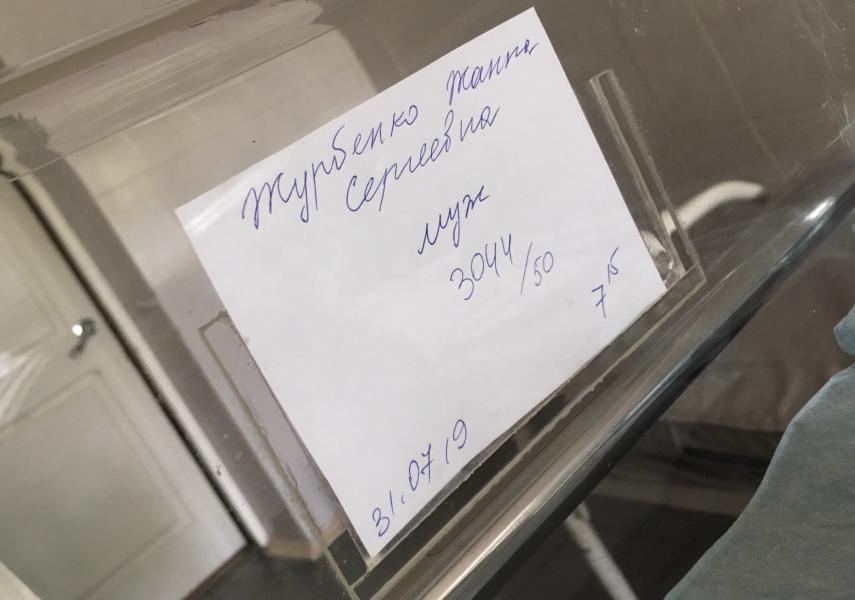 Журбенко Жанна
Сергеевна
муж
3044/50
7¹⁵
31.07.19